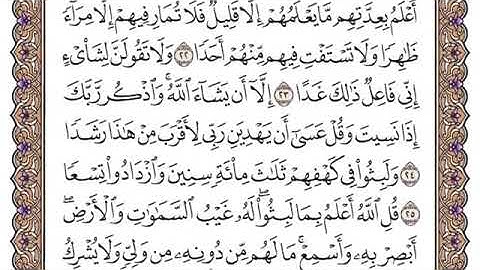 أَعْلَمُ بِعِدَّتِهِم مَّا يَعْلَمُهُمْ إِلَّا قَلِيلٌ ۗ فَلَا تُمَارِ فِيهِمْ إِلَّا مِرَآءً
ظَٰهِرًا وَلَا تَسْتَفْتِ فِيهِم مِّنْهُمْ أَحَدًا ٢٢ وَلَا تَقُولَنَّ لِشَا۟ىْءٍ
إِنِّي فَاعِلٌ ذَٰلِكَ غَدًا ٢٣ إِلَّآ أَن يَشَآءَ ٱللَّهُ ۚ وَٱذْكُر رَّبَّكَ
إِذَا نَسِيتَ وَقُلْ عَسَىٰٓ أَن يَهْدِيَنِ رَبِّي لِأَقْرَبَ مِنْ هَٰذَا رَشَدًا
٢٤ وَلَبِثُوا۟ فِي كَهْفِهِمْ ثَلَٰثَ مِا۟ئَةٍ سِنِينَ وَٱزْدَادُوا۟ تِسْعًا
٢٥ قُلِ ٱللَّهُ أَعْلَمُ بِمَا لَبِثُوا۟ ۖ لَهُۥ غَيْبُ ٱلسَّمَٰوَٰتِ وَٱلْأَرْضِ ۖ
أَبْصِرْ بِهِۦ وَأَسْمِعْ ۚ مَا لَهُم مِّن دُونِهِۦ مِن وَلِيٍّ وَلَا يُشْرِكُ